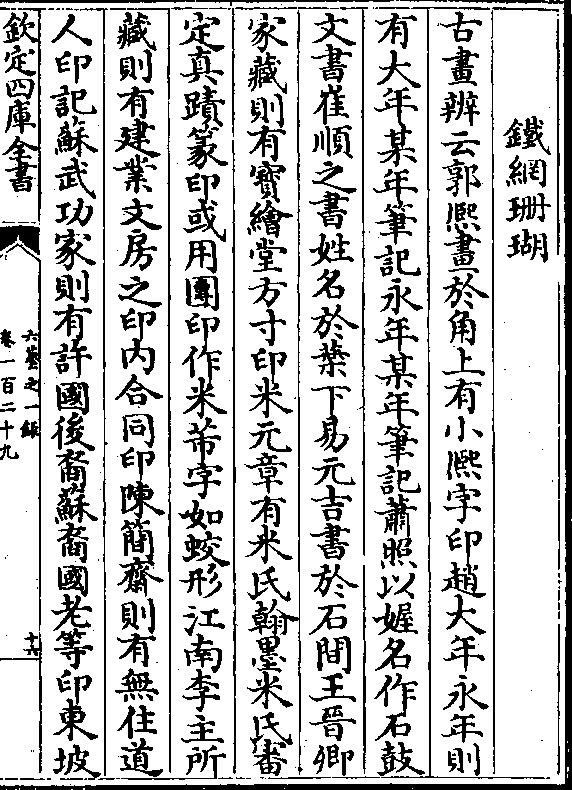 鐵網珊瑚
古畫辨云郭熈畫於角上有小熈字印趙大年永年則
有大年某年筆記永年某年筆記蕭照以姓名作石鼓
文書崔順之書姓名於葉下易元吉書於石間王晉卿
家藏則有寳繪堂方寸印米元章有米氏翰墨米氏審
定真蹟篆印或用團印作米芾字如蛟形江南李主所
藏則有建業文房之印内合同印陳簡齋則有無住道
人印記蘇武功家則有許國後裔蘇裔國老等印東坡
欽定四庫全書
六藝之一錄
卷一百二十九
十六